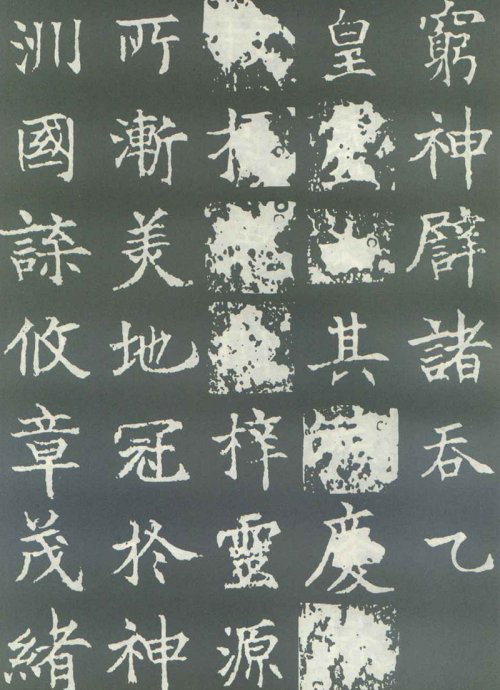 窮神譬諸吞乙
皇其慶
梓靈源
所漸美地冠扵神
洲國諜攸章茂緒